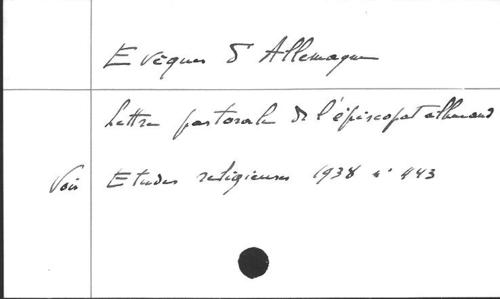 Evêques d'Allemagne
Lettre pastorale de l'épiscopat allemand
Voir Etudes religieuses 1938 n° 443